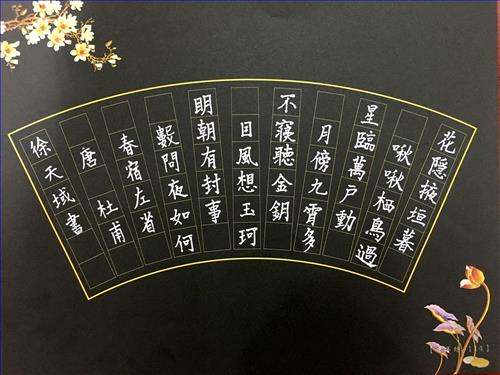 花隱掖垣暮
啾啾栖鳥過
星臨萬戶動
月傍九霄多
不寢聽金鈅
因風想玉珂
明朝有封事
數問夜如何
春宿左省
唐 杜甫
徐天域書